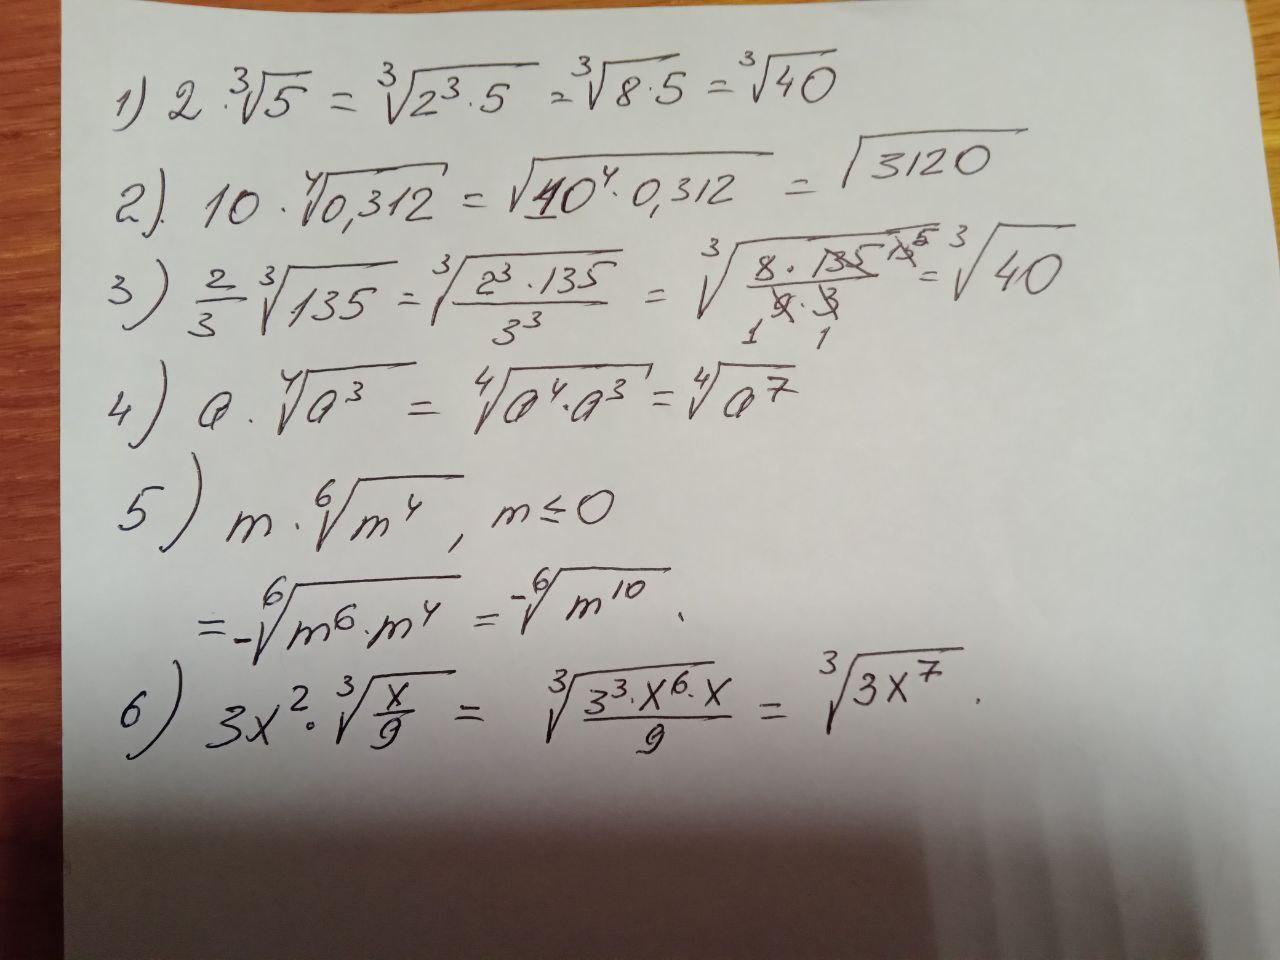 1) 2 · ∛5 = ∛(2³ · 5) = ∛(8 · 5) = ∛40
2). 10 · ∜0,312 = √(10⁴ · 0,312) = √3120
3) 2/3 ∛135 = ∛((2³ · 135)/3³) = ∛((8 · 135 15 5)/(9 · 3 1 1)) = ∛40
4) a · ∜a³ = ∜(a⁴ · a³) = ∜a⁷
5) m · ⁶√m⁴, m ≤ 0
= -⁶√(m⁶ · m⁴) = -⁶√m¹⁰.
6) 3x² · ∛(x/9) = ∛((3³ · x⁶ · x)/9) = ∛(3x⁷).